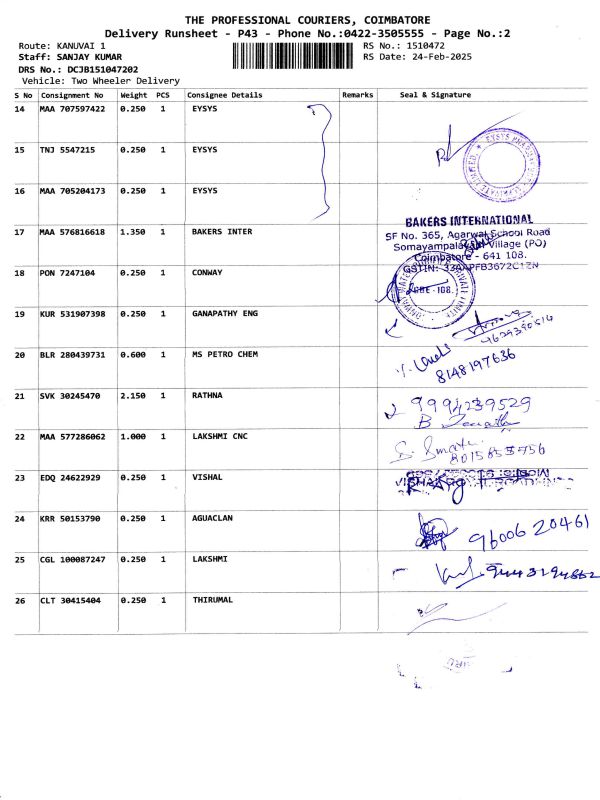 THE PROFESSIONAL COURIERS, COIMBATORE
Delivery Runsheet - P43 - Phone No.:0422-3505555 - Page No.:2
Route: KANUVAI 1 RS No.: 1510472
Staff: SANJAY KUMAR RS Date: 24-Feb-2025
DRS No.: DCJB151047202
Vehicle: Two Wheeler Delivery
S No Consignment No Weight PCS Consignee Details Remarks Seal & Signature
14 MAA 707597422 0.250 1 EYSYS
15 TNJ 5547215 0.250 1 EYSYS
16 MAA 705204173 0.250 1 EYSYS
BAKERS INTERNATIONAL
17 MAA 576816618 1.350 1 BAKERS INTER SF No. 365, Agarwal School Road
Somayampalayam Village (PO)
Coimbatore - 641 108.
GSTIN:
18 PON 7247104 0.250 1 CONWAY
19 KUR 531907398 0.250 1 GANAPATHY ENG
20 BLR 280439731 0.600 1 MS PETRO CHEM
8148197636
21 SVK 30245470 2.150 1 RATHNA 9994239529
22 MAA 577286062 1.000 1 LAKSHMI CNC
23 EDQ 24622929 0.250 1 VISHAL
24 KRR 50153790 0.250 1 AGUACLAN 9600620461
25 CGL 100087247 0.250 1 LAKSHMI
26 CLT 30415404 0.250 1 THIRUMAL